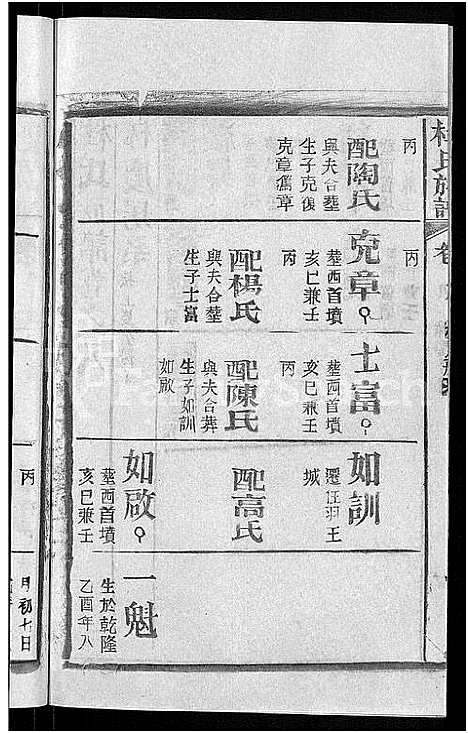 氏族譜
卷
丙
配陶氏
與夫合塟
生子克復
克章舊章
丙
克章
塟西首墳
亥巳兼壬
丙
配楊氏
與夫合塟
生子士富
士富
塟西首墳
亥巳兼壬
丙
配陳氏
與夫合葬
生子如訓
如啟
如訓
城
配高氏
如啟
塟西首墳
亥巳兼壬
一魁
生於乾隆
乙酉年八
月初七日
丙